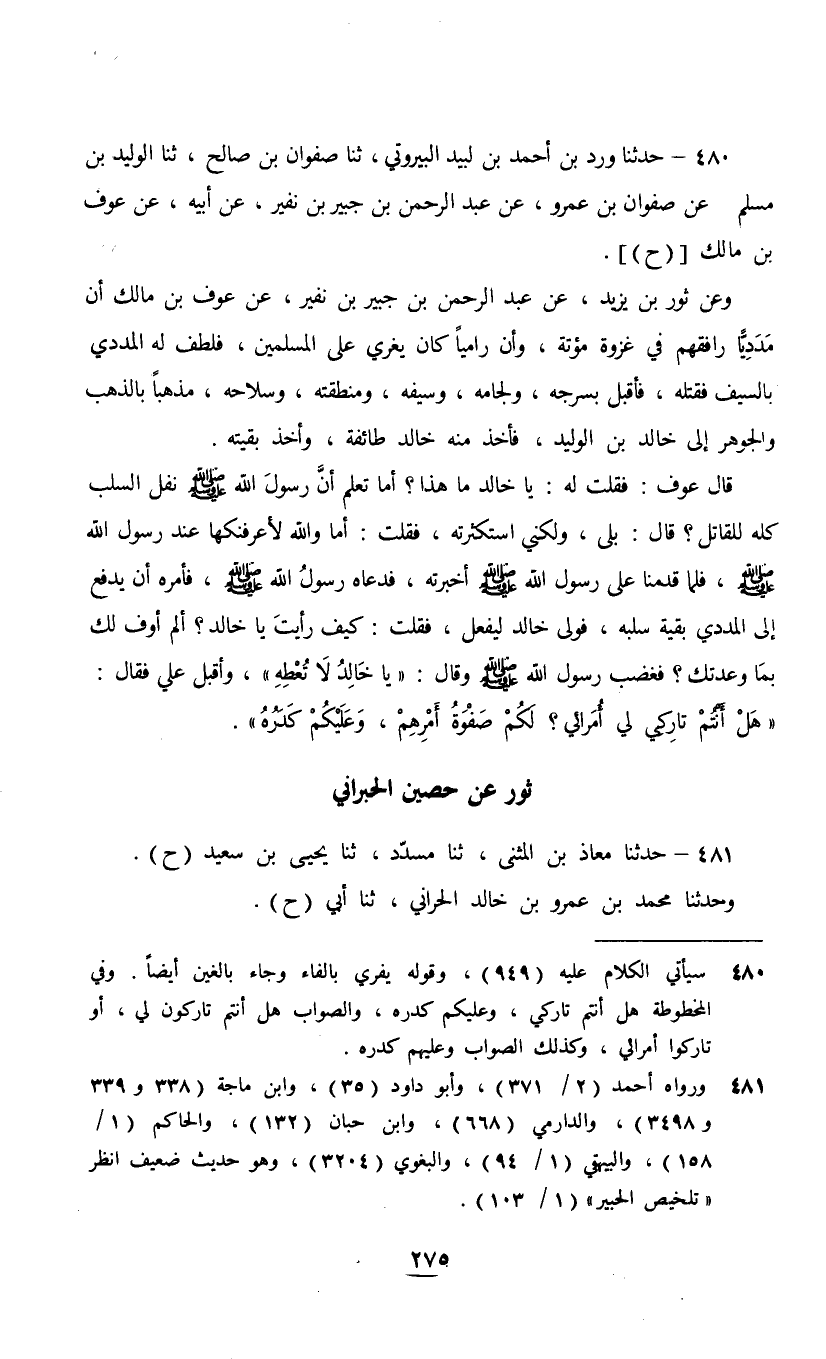 ٤٨٠ – حدثنا ورد بن أحمد بن لبيد البيروتي ، ثنا صفوان بن صالح ، ثنا الوليد بن
مسلم عن صفوان بن عمرو ، عن عبد الرحمن بن جبير بن نفير ، عن أبيه ، عن عوف
بن مالك [(ح)] .
وعن ثور بن يزيد ، عن عبد الرحمن بن جبير بن نفير ، عن عوف بن مالك أن
مَدَدِيًّا رافقهم في غزوة مؤتة ، وأن رامياً كان يغري على المسلمين ، فلطف له المددي
بالسيف فقتله ، فأقبل بسرجه ، ولجامه ، وسيفه ، ومنطقته ، وسلاحه ، مذهباً بالذهب
والجوهر إلى خالد بن الوليد ، فأخذ منه خالد طائفة ، وأخذ بقيته .
قال عوف : فقلت له : يا خالد ما هذا ؟ أما تعلم أنَّ رسولَ الله ﷺ نفل السلب
كله للقاتل ؟ قال : بلى ، ولكني استكثرته ، فقلت : أما والله لأعرفنكها عند رسول الله
ﷺ ، فلما قدمنا على رسول الله ﷺ أخبرته ، فدعاه رسولُ الله ﷺ ، فأمره أن يدفع
إلى المددي بقية سلبه ، فولى خالد ليفعل ، فقلت : كيف رأيتَ يا خالد ؟ ألم أوف لك
بما وعدتك ؟ فغضب رسول الله ﷺ وقال : « يا خَالِدُ لَا تُعْطِهِ » ، وأقبل علي فقال :
« هَلْ أَنْتُمْ تارِكِي لي أُمَرائي ؟ لَكُمْ صَفْوَةُ أَمْرِهِمْ ، وَعَلَيْكُمْ كَدَرُهُ » .
ثور عن حصين الحبراني
٤٨١ – حدثنا معاذ بن المثنى ، ثنا مسدّد ، ثنا يحيى بن سعيد (ح) .
وحدثنا محمد بن عمرو بن خالد الحراني ، ثنا أبي (ح) .
٤٨٠ سيأتي الكلام عليه (٩٤٩) ، وقوله يفري بالفاء وجاء بالغين أيضاً . وفي
المخطوطة هل أنتم تاركي ، وعليكم كدره ، والصواب هل أنتم تاركون لي ، أو
تاركوا أمرائي ، وكذلك الصواب وعليهم كدره .
٤٨١ ورواه أحمد (٢ / ٣٧١) ، وأبو داود (٣٥) ، وابن ماجة (٣٣٨ و ٣٣٩
و ٣٤٩٨) ، والدارمي (٦٦٨) ، وابن حبان (١٣٢) ، والحاكم (١ /
١٥٨) ، والبيهقي (١ / ٩٤) ، والبغوي (٣٢٠٤) ، وهو حديث ضعيف انظر
« تلخيص الحبير » (١ / ١٠٣) .
٢٧٥